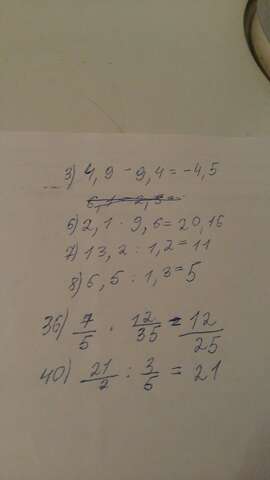 3) 4,9 - 9,4 = -4,5
6) 2,1 · 9,6 = 20,16
7) 13,2 : 1,2 = 11
8) 6,5 : 1,3 = 5
36) 7/5 · 12/35 = 12/25
40) 21/2 : 3/6 = 21